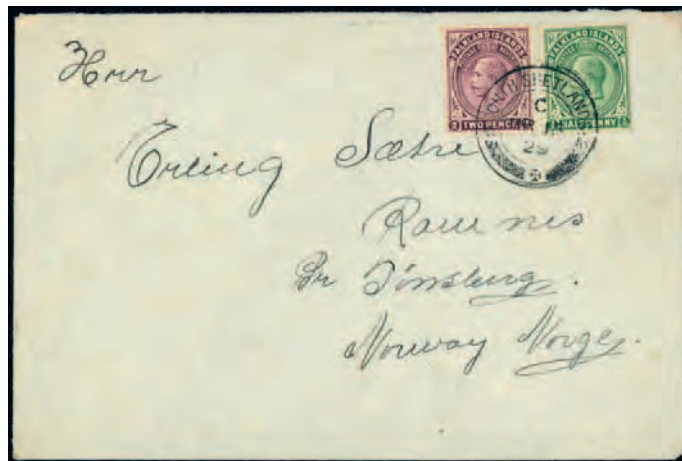 Herr
Erling Sætre
Ramnes
Pr Tønsberg.
Norway Norge.
FALKLAND ISLANDS
POSTAGE & REVENUE
2 TWO PENCE 2
FALKLAND ISLANDS
HALFPENNY
SOUTH SHETLANDS
C
29